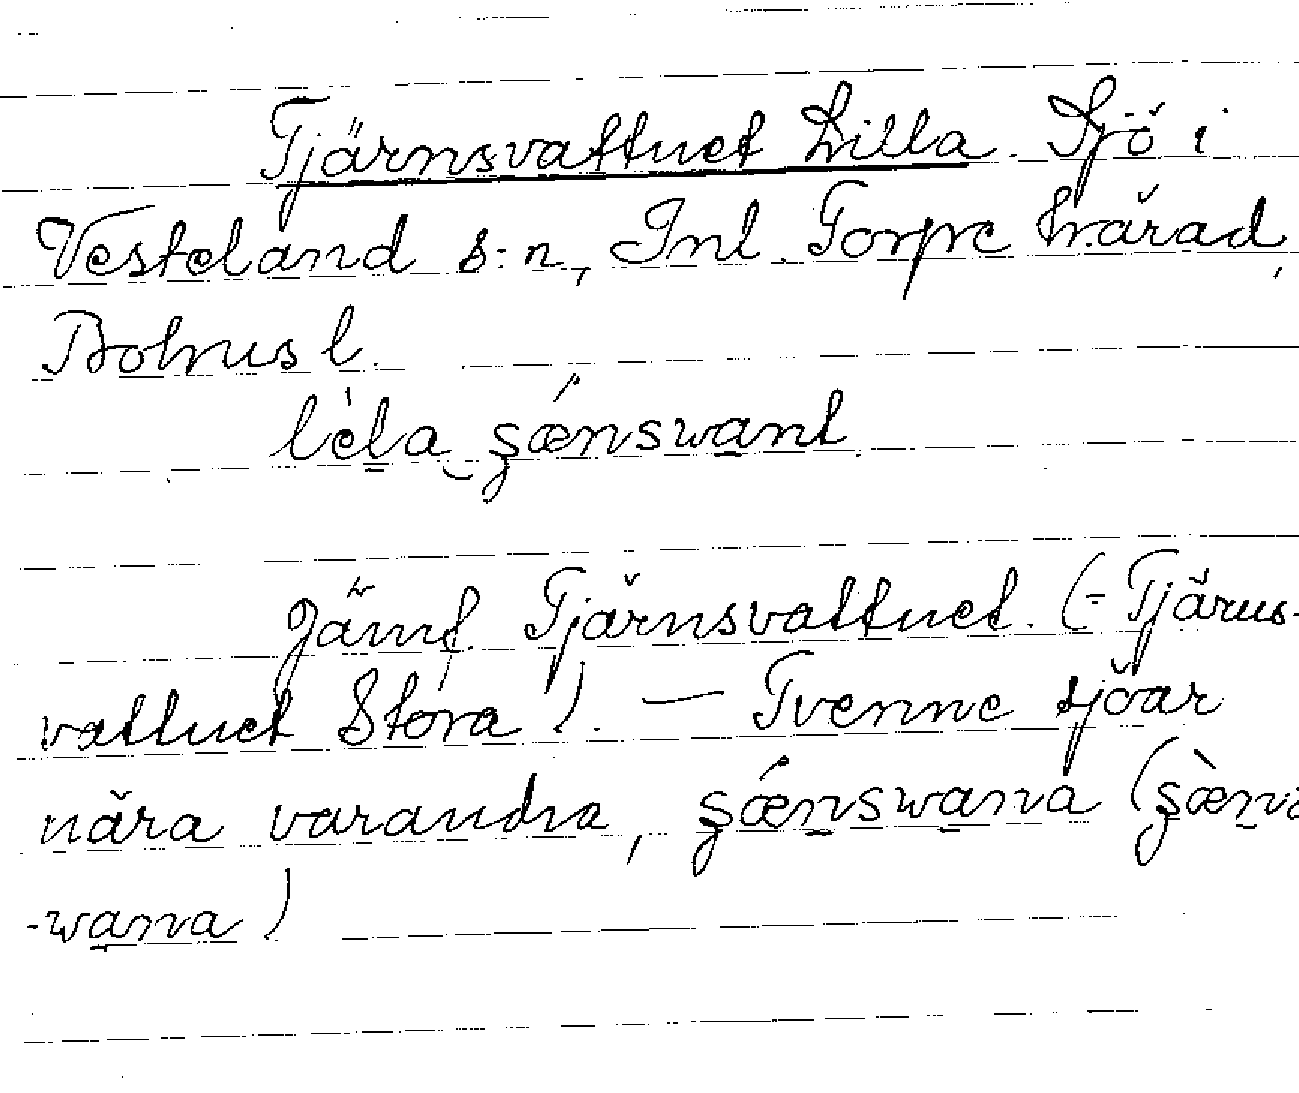 Tjärnsvattnet Lilla. Sjö i
Vesteland s:n, Inl. Torpe härad,
Bohusl.
lèla şǽnswant
Jämf. Tjärnsvattnet. (= Tjärns-
vattnet Stora). — Tvenne sjöar
nära varandra, şǽnswana (şæ̀ns
-wana)